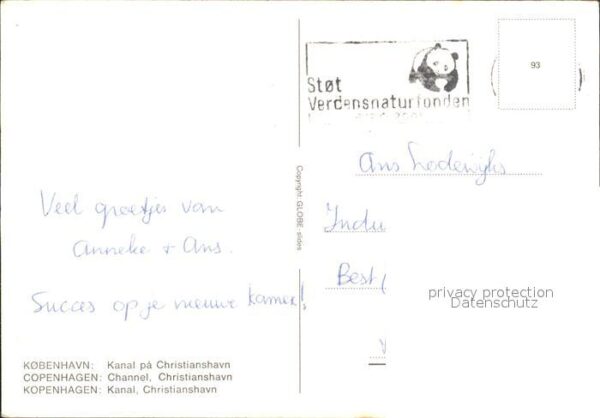 Støt
Verdensnaturfonden
93
Copyright GLOBE slides
Ans Lodewijks
Indu
Best (
privacy protection
Datenschutz
Veel groetjes van
Anneke + Ans.
Succes op je nieuwe kamer!
KØBENHAVN: Kanal på Christianshavn
COPENHAGEN: Channel, Christianshavn
KOPENHAGEN: Kanal, Christianshavn